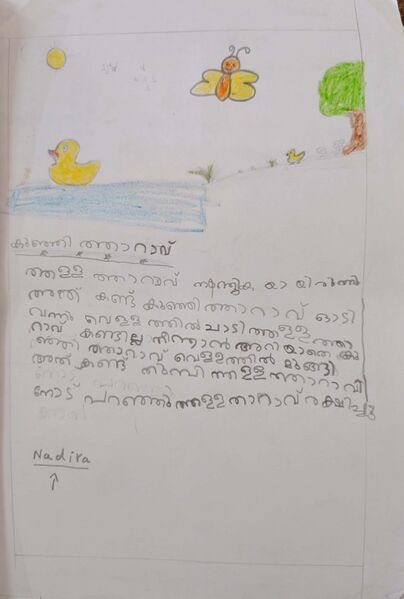 കുഞ്ഞി ത്താറാവ്
ത്തള്ള ത്താറാവ് യായിരുന്നു
അത് കണ്ട് കുഞ്ഞിത്താറാവ് ഓടി
വന്നു വെള്ളത്തിൽ ചാടിത്തള്ളത്താ
റാവ് കണ്ടില്ല നീന്താൻ അറിയാതെ കു
ഞ്ഞി ത്താറാവ് വെള്ളത്തിൽ മുങ്ങി
അത് കണ്ട് തുമ്പി ത്തള്ളത്താറാവി
നോട് പറഞ്ഞു ത്തള്ളതാറാവ് രക്ഷിച്ചു
Nadira